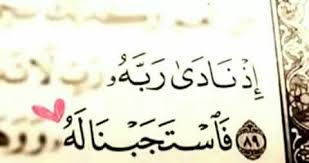 إِذْ نَادَىٰ رَبَّهُۥ رَبِّ لَا
٨٩ فَٱسْتَجَبْنَا لَهُۥ